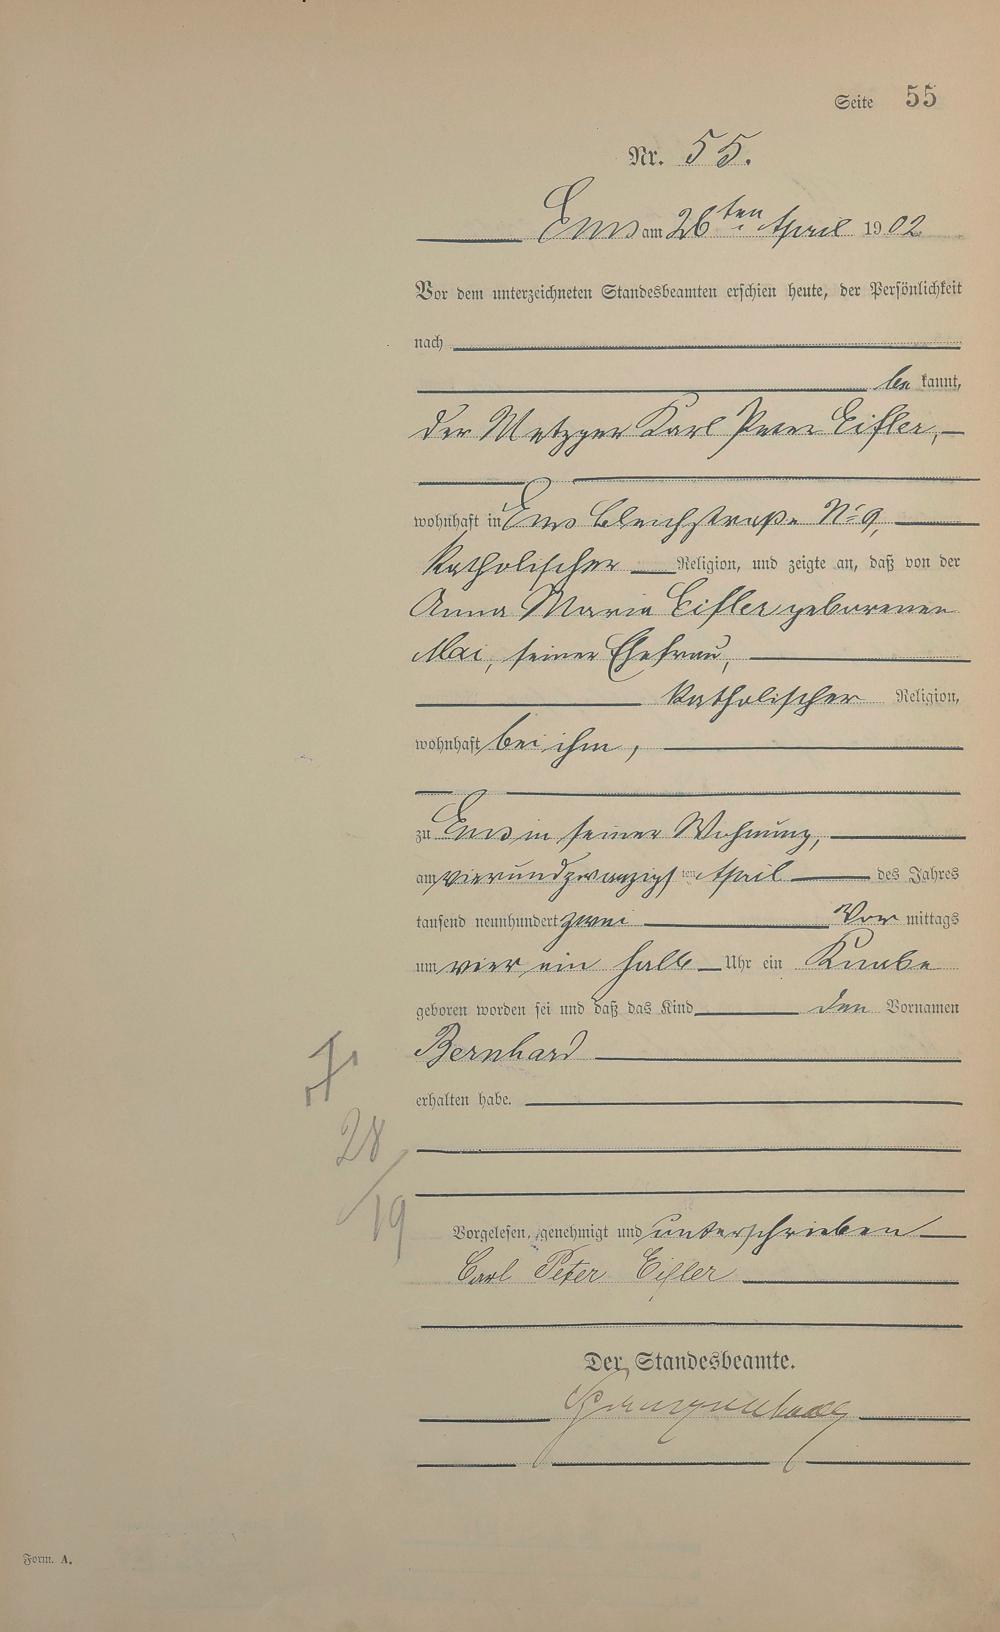 Seite 55
Nr. 55.
Ems am 26ten April 1902
Vor dem unterzeichneten Standesbeamten erschien heute, der Persönlichkeit
nach
bekannt,
der Metzger Karl Peter Eifler,
wohnhaft in Ems Bleichstraße No 9,
katholischer Religion, und zeigte an, daß von der
Anna Maria Eifler geborenen
Mai, seiner Ehefrau,
katholischer Religion,
wohnhaft bei ihm,
zu Ems in seiner Wohnung,
am vierundzwanzigsten April des Jahres
tausend neunhundert zwei Vormittags
um vier ein halb Uhr ein Knabe
geboren worden sei und daß das Kind den Vornamen
Bernhard
erhalten habe.
28
/19
Vorgelesen, genehmigt und unterschrieben
Carl Peter Eifler
Der Standesbeamte.
Form. A.